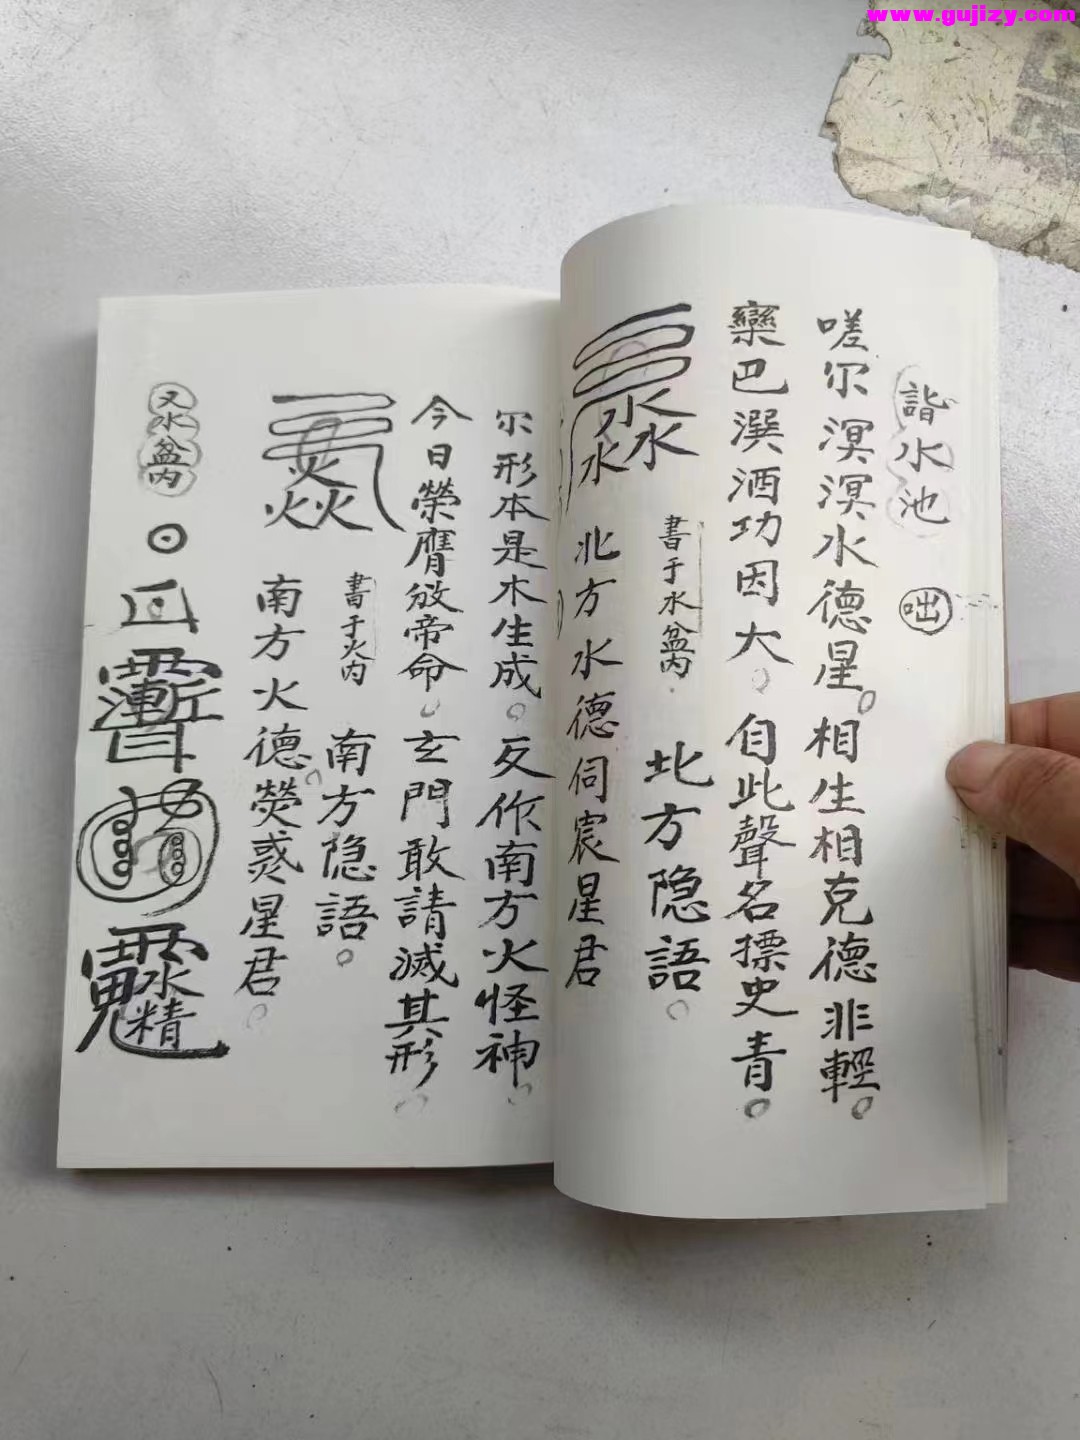 www.gujizy.com
詣水池 咄
嗟尔溟溟水德星。相生相克德非輕。
欒巴潠酒功因大。自此聲名摽史青。
書于水盆內 北方隐語。
北方水德伺宸星君
尔形本是木生成。反作南方火怪神。
今日榮膺敕帝命。玄門敢請滅其形。
書于火內 南方隐語。
南方火德熒惑星君。
又水盆內